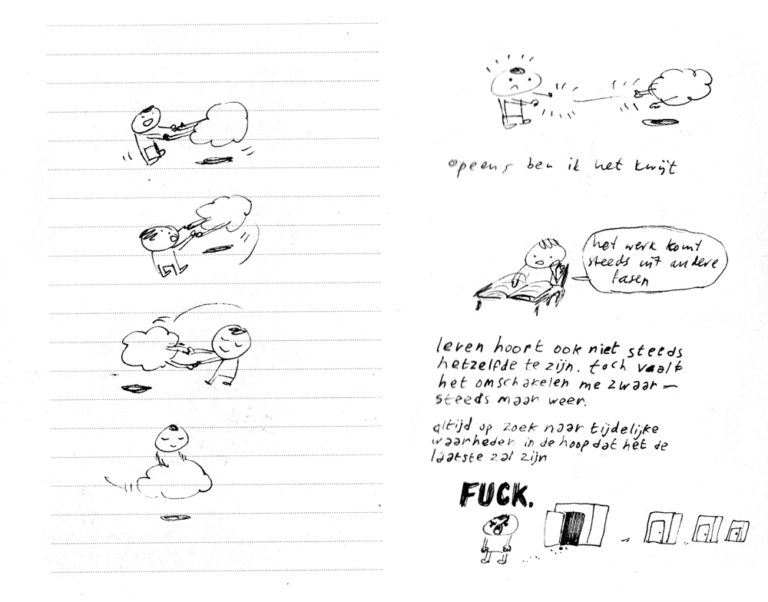 opeens ben ik het kwijt
het werk komt
steeds uit andere
fasen
leven hoort ook niet steeds
hetzelfde te zijn. toch vaalt
het omschakelen me zwaar –
steeds maar weer.
altijd op zoek naar tijdelijke
waarheden in de hoop dat het de
laatste zal zijn
FUCK.